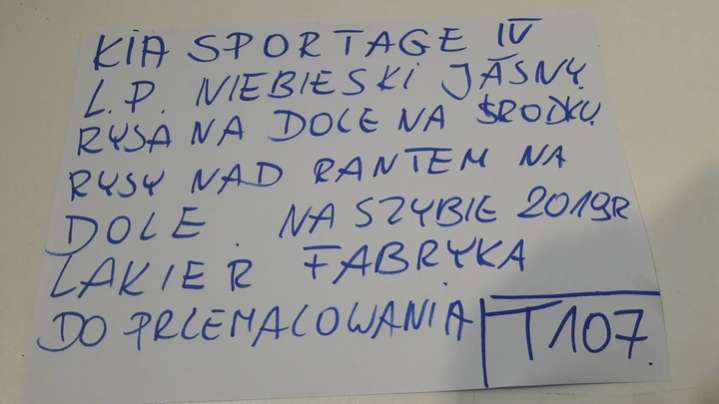 KIA SPORTAGE IV
L.P. NIEBIESKI JASNY
RYSA NA DOLE NA ŚRODKU
RYSY NAD RANTEM NA
DOLE. NA SZYBIE 2019R
LAKIER FABRYKA
DO PRZEMALOWANIA
T107.